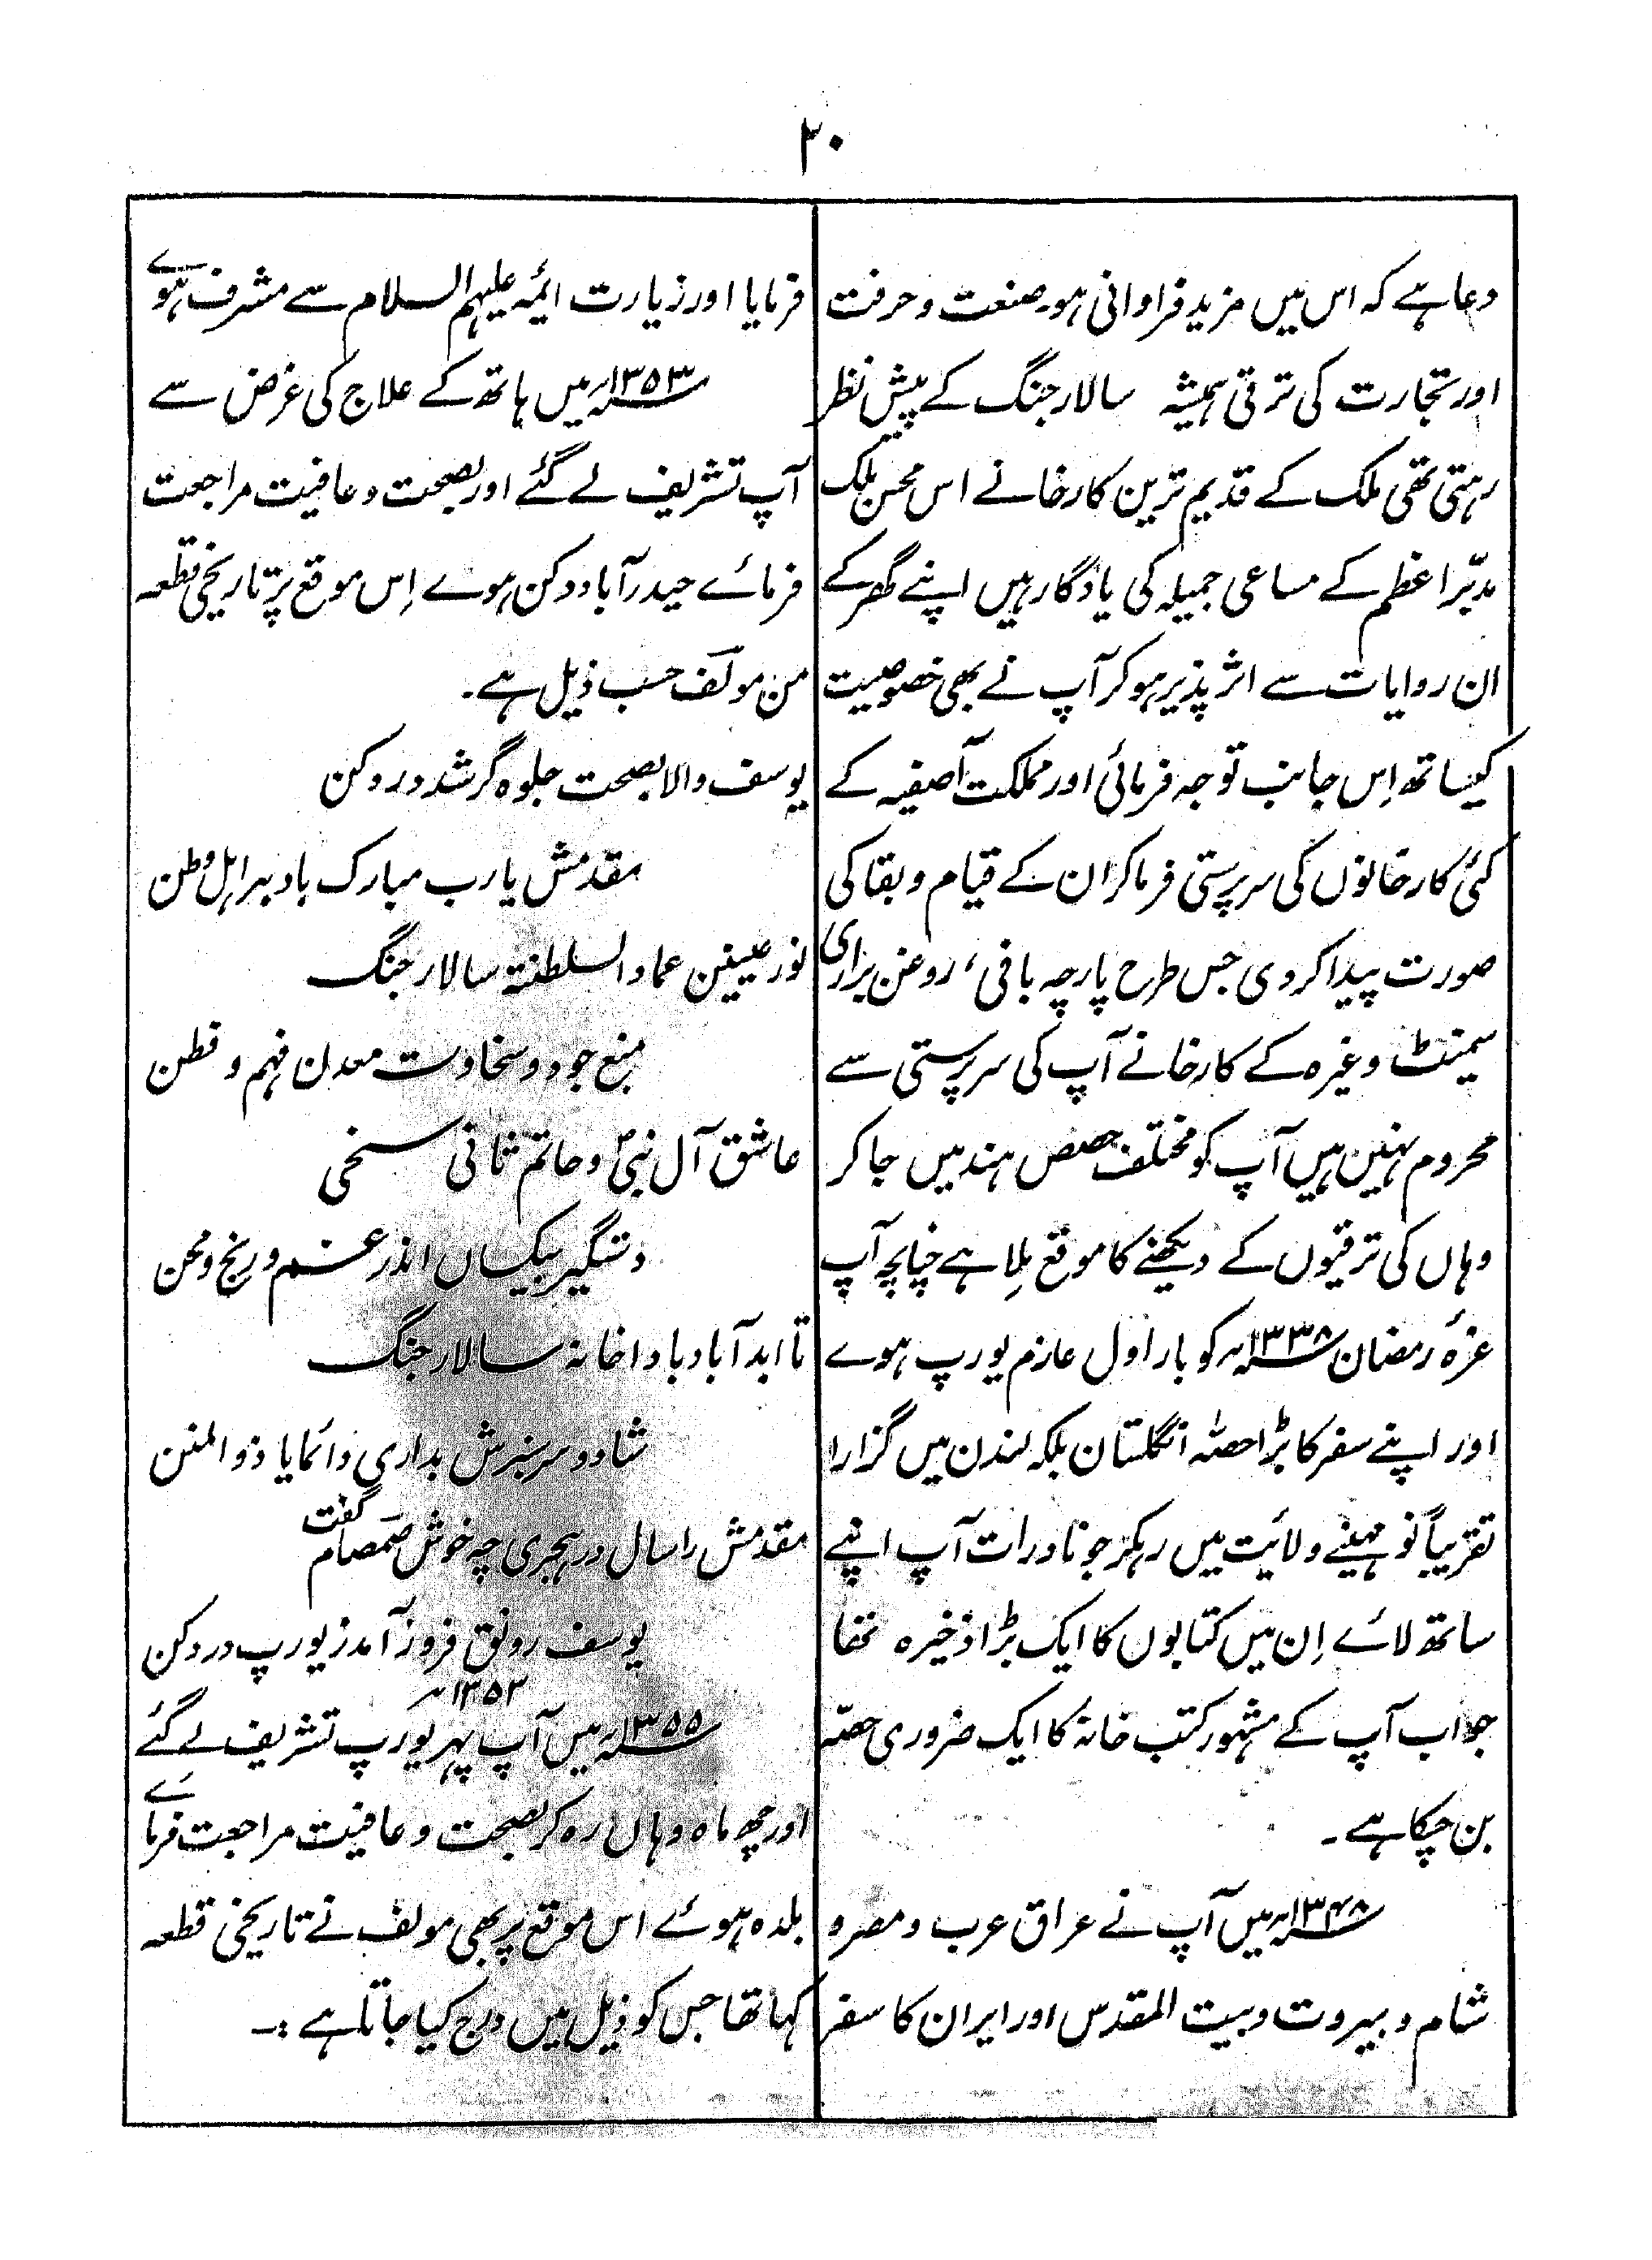 ۲۰
دعا ہے کہ اس میں مزید فراوانی ہو۔ صنعت و حرفت
اور تجارت کی ترقی ہمیشہ سالار جنگ کے پیش نظر
رہتی تھی ملک کے قدیم ترین کارخانے اس محسن ملک
مدبّر اعظم کے مساعی جمیلہ کی یادگار ہیں اپنے گھر کے
ان روایات سے اثر پذیر ہو کر آپ نے بھی خصوصیت
کیساتھ اِس جانب توجہ فرمائی اور مملکت آصفیہ کے
کئی کارخانوں کی سرپرستی فرما کر ان کے قیام و بقا کی
صورت پیدا کر دی جس طرح پارچہ بافی، روغن براری
سیمنٹ وغیرہ کے کارخانے آپ کی سرپرستی سے
محروم نہیں ہیں آپ کو مختلف حصص ہند میں جا کر
وہاں کی ترقیوں کے دیکھنے کا موقع مِلا ہے چنانچہ آپ
غرۂ رمضان ۱۳۳۸ھ کو بار اول عازم یورپ ہوے
اور اپنے سفر کا بڑا حصّہ انگلستان بلکہ لندن میں گزارا
تقریباً نو مہینے ولائیت میں رہکر جو نادرات آپ اپنے
ساتھ لائے اِن میں کتابوں کا ایک بڑا ذخیرہ تھا
جو اب آپ کے مشہور کتب خانہ کا ایک ضروری حصّہ
بن چکا ہے۔
۱۳۴۸ھ میں آپ نے عراق عرب و مصر و
شام و بیروت و بیت المقدس اور ایران کا سفر
فرمایا اور زیارت ائمہ علیہم السلام سے مشرف ہوے
۱۳۵۳ھ میں ہاتھ کے علاج کی غرض سے
آپ تشریف لے گئے اور بصحت و عافیت مراجعت
فرمائے حیدرآباد دکن ہوے اِس موقع پر تاریخی قطعہ
من مولف حسب ذیل ہے۔
یوسف والا بصحت جلوہ گر شد در دکن
مقدمش یا رب مبارک باد بر اہل وطن
نور عینین عماد السلطنۃ سالار جنگ
منبع جود و سخاوت معدن فہم و فطن
عاشق آل نبیؐ و حاتم ثانی سخی
دستگیر بیکساں اندر غم و رنج و محن
تا ابد آباد بادا خانہ سالار جنگ
شاد و سرسبزش بداری دائما یا ذوالمنن
مقدمش را سال در ہجری چہ خوش صمصام گفت
یوسف رونق فروز آمد ز یورپ در دکن
۱۳۵۳ھ
۱۳۵۵ھ میں آپ پہر یورپ تشریف لے گئے
اور چھ ماہ وہاں رہ کر بصحت و عافیت مراجعت فرمائے
بلدہ ہوئے اس موقع پر بھی مولف نے تاریخی قطعہ
کہا تھا جس کو ذیل میں درج کیا جاتا ہے :۔